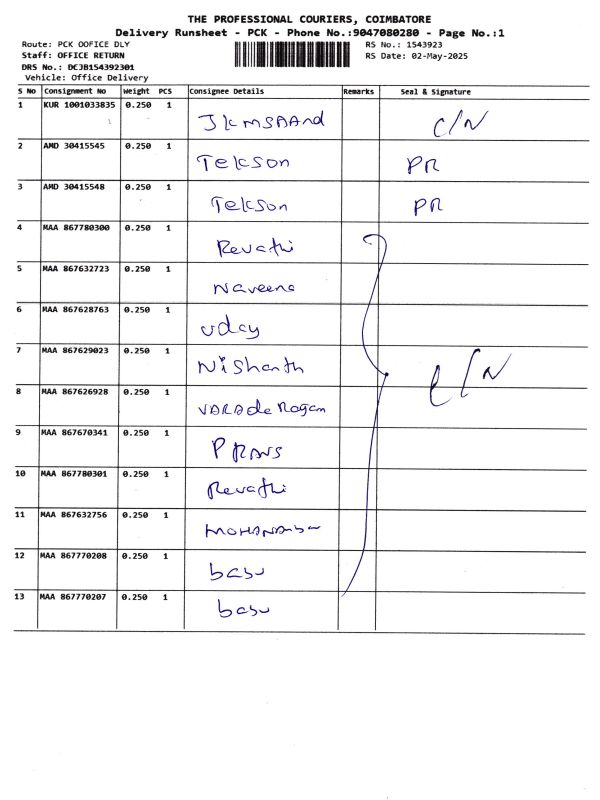 THE PROFESSIONAL COURIERS, COIMBATORE
Delivery Runsheet - PCK - Phone No.:9047080280 - Page No.:1
Route: PCK OOFICE DLY RS No.: 1543923
Staff: OFFICE RETURN RS Date: 02-May-2025
DRS No.: DCJB154392301
Vehicle: Office Delivery
S No Consignment No Weight PCS Consignee Details Remarks Seal & Signature
1 KUR 1001033835 0.250 1 C/N
2 AMD 30415545 0.250 1 Tekson PR
3 AMD 30415548 0.250 1 Tekson PR
4 MAA 867780300 0.250 1 Revathi
5 MAA 867632723 0.250 1 Naveena
6 MAA 867628763 0.250 1 uday
7 MAA 867629023 0.250 1 Nishanth C/N
8 MAA 867626928 0.250 1
9 MAA 867670341 0.250 1
10 MAA 867780301 0.250 1 Revathi
11 MAA 867632756 0.250 1
12 MAA 867770208 0.250 1 basu
13 MAA 867770207 0.250 1 basu